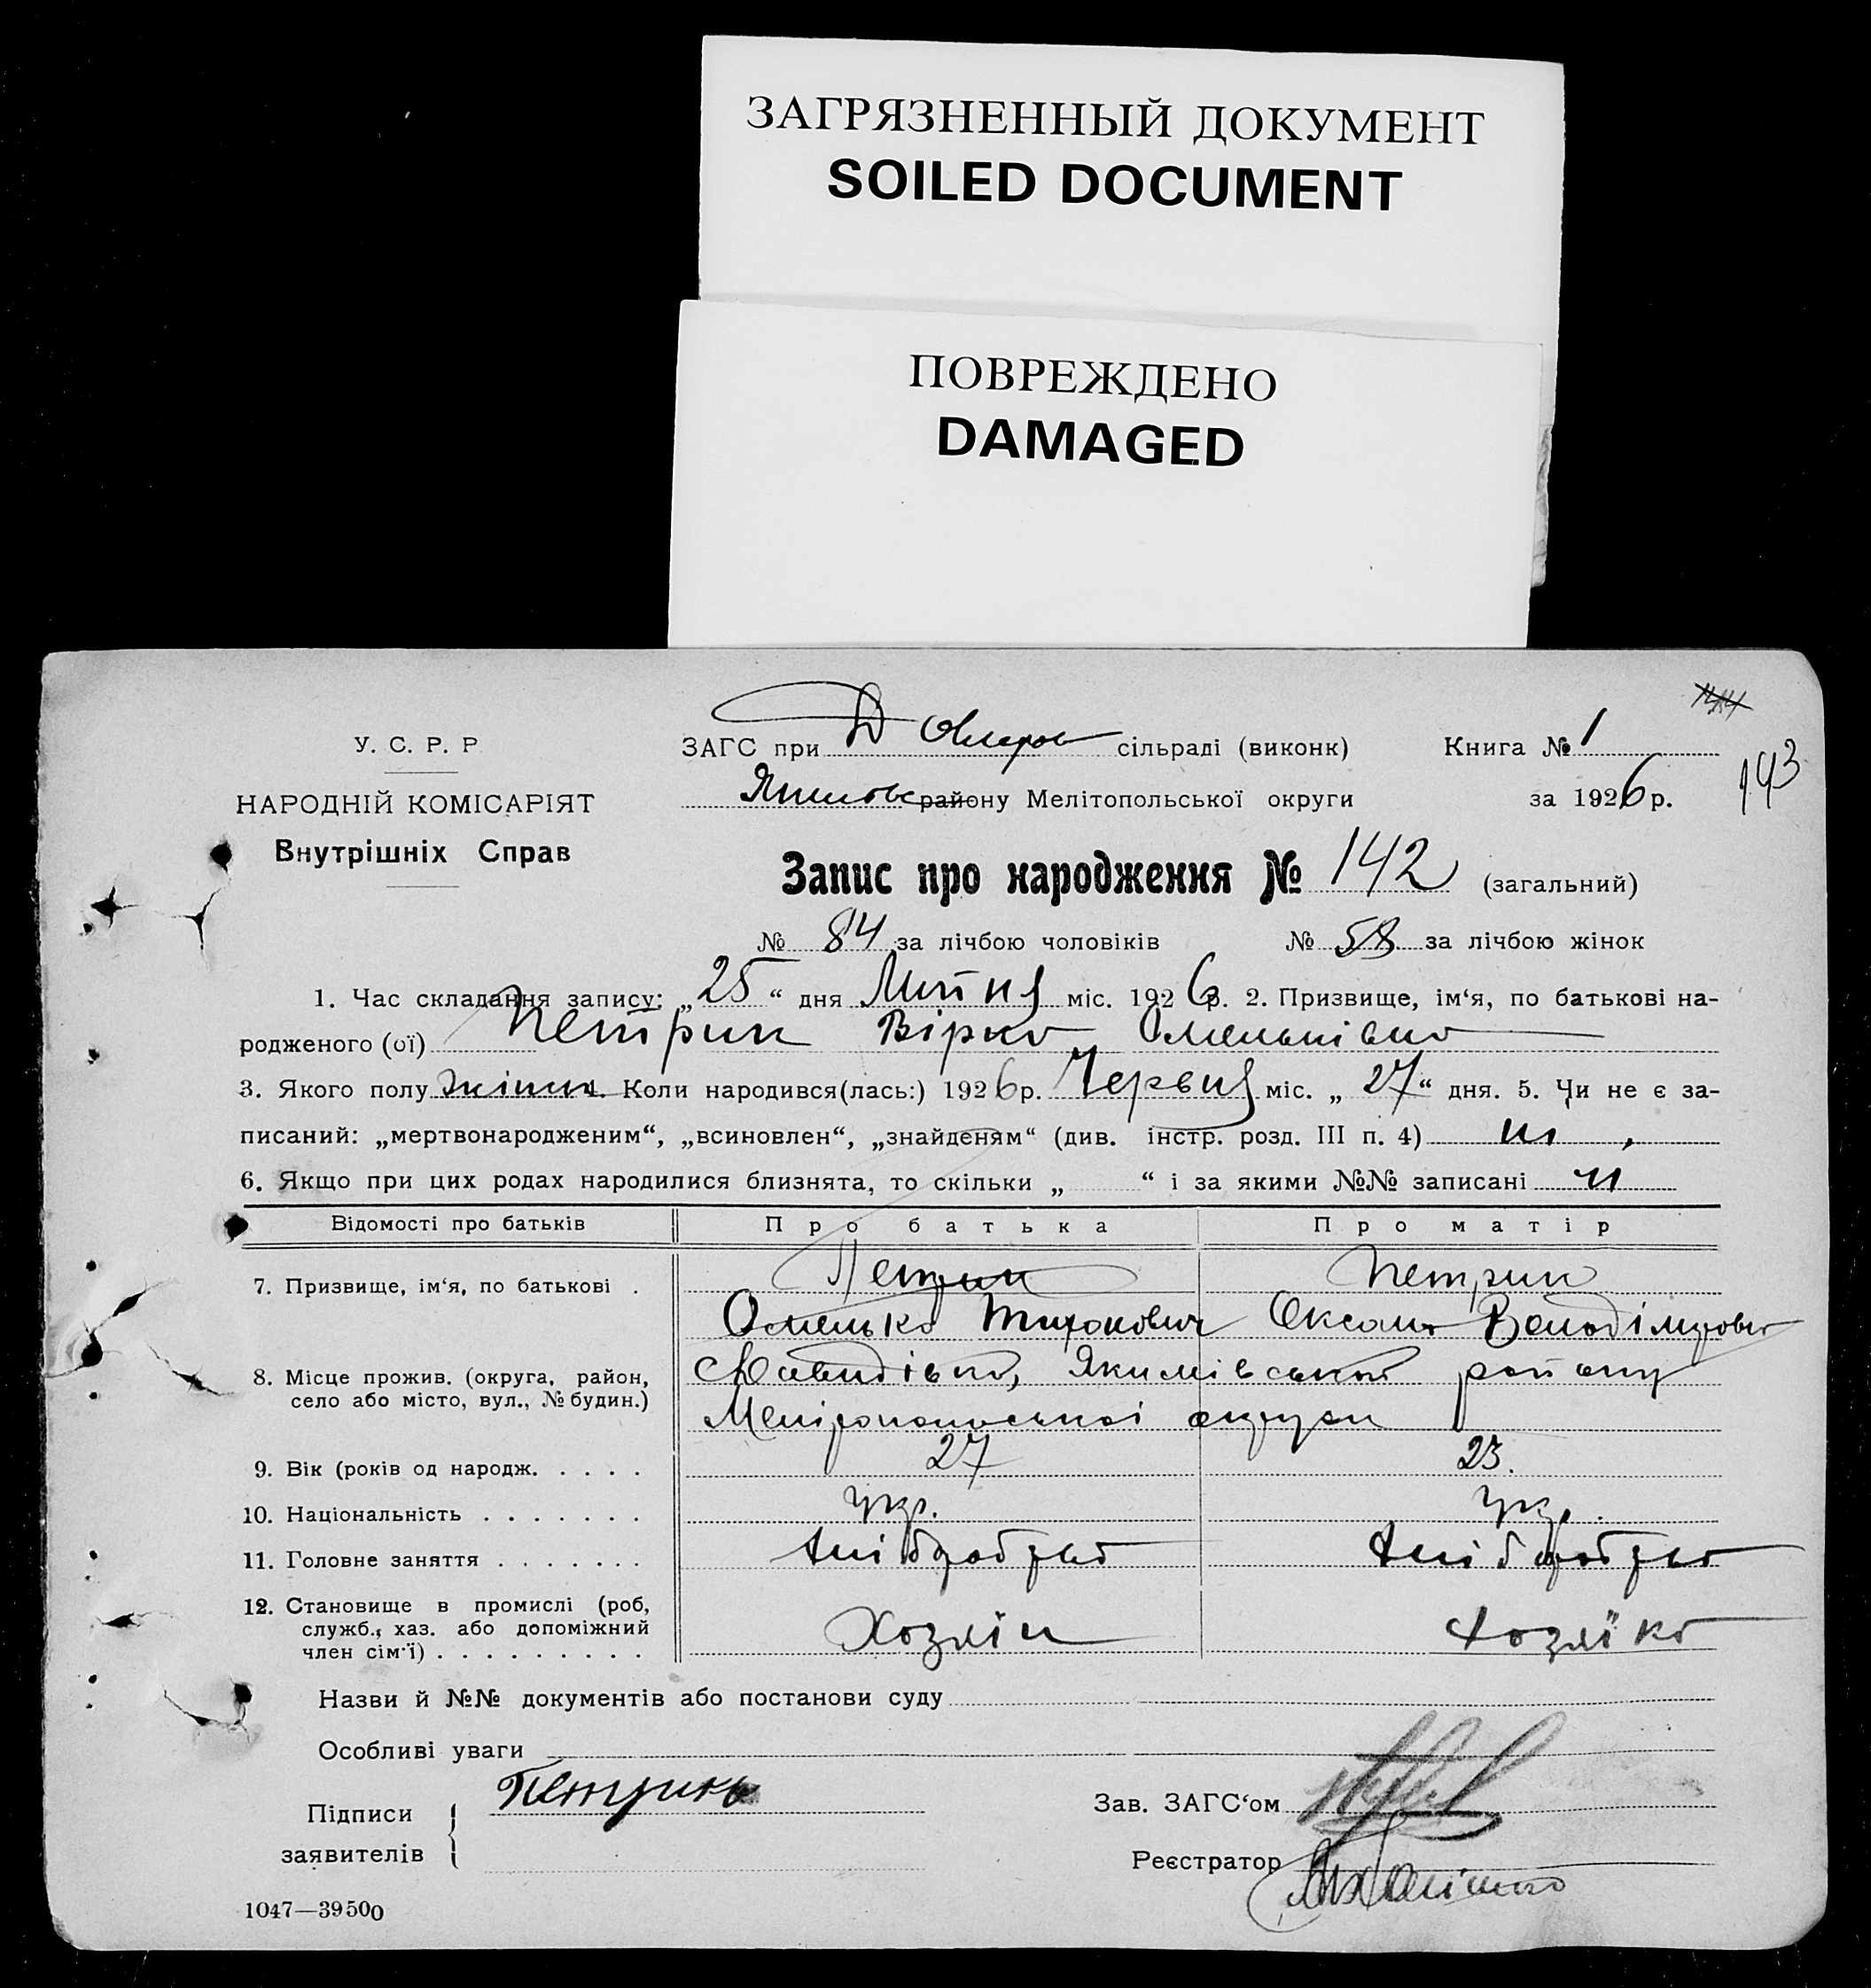 ЗАГРЯЗНЕННЫЙ ДОКУМЕНТ
SOILED DOCUMENT
ПОВРЕЖДЕНО
DAMAGED
У. С. Р. Р
НАРОДНІЙ КОМІСАРІЯТ
Внутрішніх Справ
ЗАГС при сільраді (виконк)
Книга № 1
району Мелітопольської округи
за 1926 р.
143
Запис про народження № 142 (загальний)
№ 84 за лічбою чоловіків № 58 за лічбою жінок
1. Час складання запису: „25“ дня Липня міс. 1926 р. 2. Призвище, ім‘я, по батькові на-
родженого (ої) Петрик Вірка Омельківна
3. Якого полу жіноч. Коли народився(лась:) 1926 р. Червня міс. „27“ дня. 5. Чи не є за-
писаний: „мертвонародженим“, „всиновлен“, „знайденям“ (див. інстр. розд. III п. 4) ні
6. Якщо при цих родах народилися близнята, то скільки „ “ і за якими №№ записані
Відомості про батьків Про батька Про матір
7. Призвище, ім‘я, по батькові . Петрик Петрик
Омелько Оксана
8. Місце прожив. (округа, район, Давидівка, Якимівської району
село або місто, вул., № будин.) Мелітопольської округи
9. Вік (років од народж. . . . . 27 23.
10. Національність . . . . . . . укр. укр.
11. Головне заняття . . . . . . . хліборобство хліборобство
12. Становище в промислі (роб, служб., хаз. або допоміжний член сім‘ї) . . . . . . . . . Хозяїн Хозяйка
Назви й №№ документів або постанови суду
Особливі уваги
Підписи заявителів Петрик
Зав. ЗАГС‘ом
Реєстратор
1047—39500